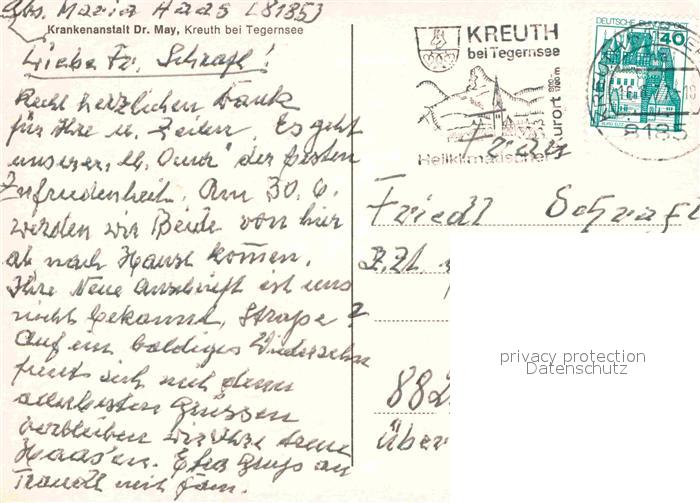 Abs. Maria Haas (8185)
Krankenanstalt Dr. May, Kreuth bei Tegernsee
Liebe Fr. Schrafl!
Recht herzlichen Dank
für Ihre u. Zeilen. Es geht
unserer "Oma" der besten
Zufriedenheit. Am 30. 6.
werden wir Beide von hier
ab nach Hause kommen.
Ihre Neue Anschrift ist uns
nicht bekannt, Straße?
Auf ein baldiges Wiedersehn
freut sich mit den
allerbesten Grüssen
verbleiben wir Ihre
Haas'en. Extra Gruß an
Traudl mit Fam.
KREUTH
bei Tegernsee
800-
Kurort
Heilklimatischer
DEUTSCHE BUNDESPOST
40
8185
Frau
Friedl Schrafl
z.Zt.
882
Über
privacy protection
Datenschutz